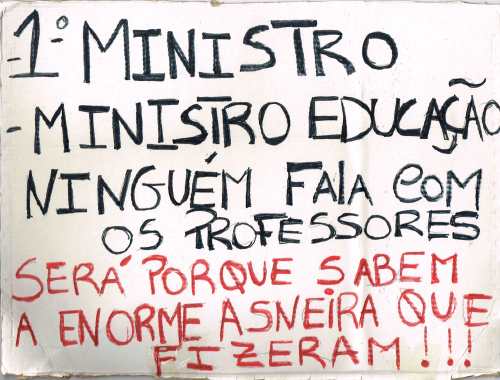 -1º MINISTRO
-MINISTRO EDUCAÇÃO
NINGUÉM FALA COM
OS PROFESSORES
SERÁ PORQUE SABEM
A ENORME ASNEIRA QUE
FIZERAM!!!